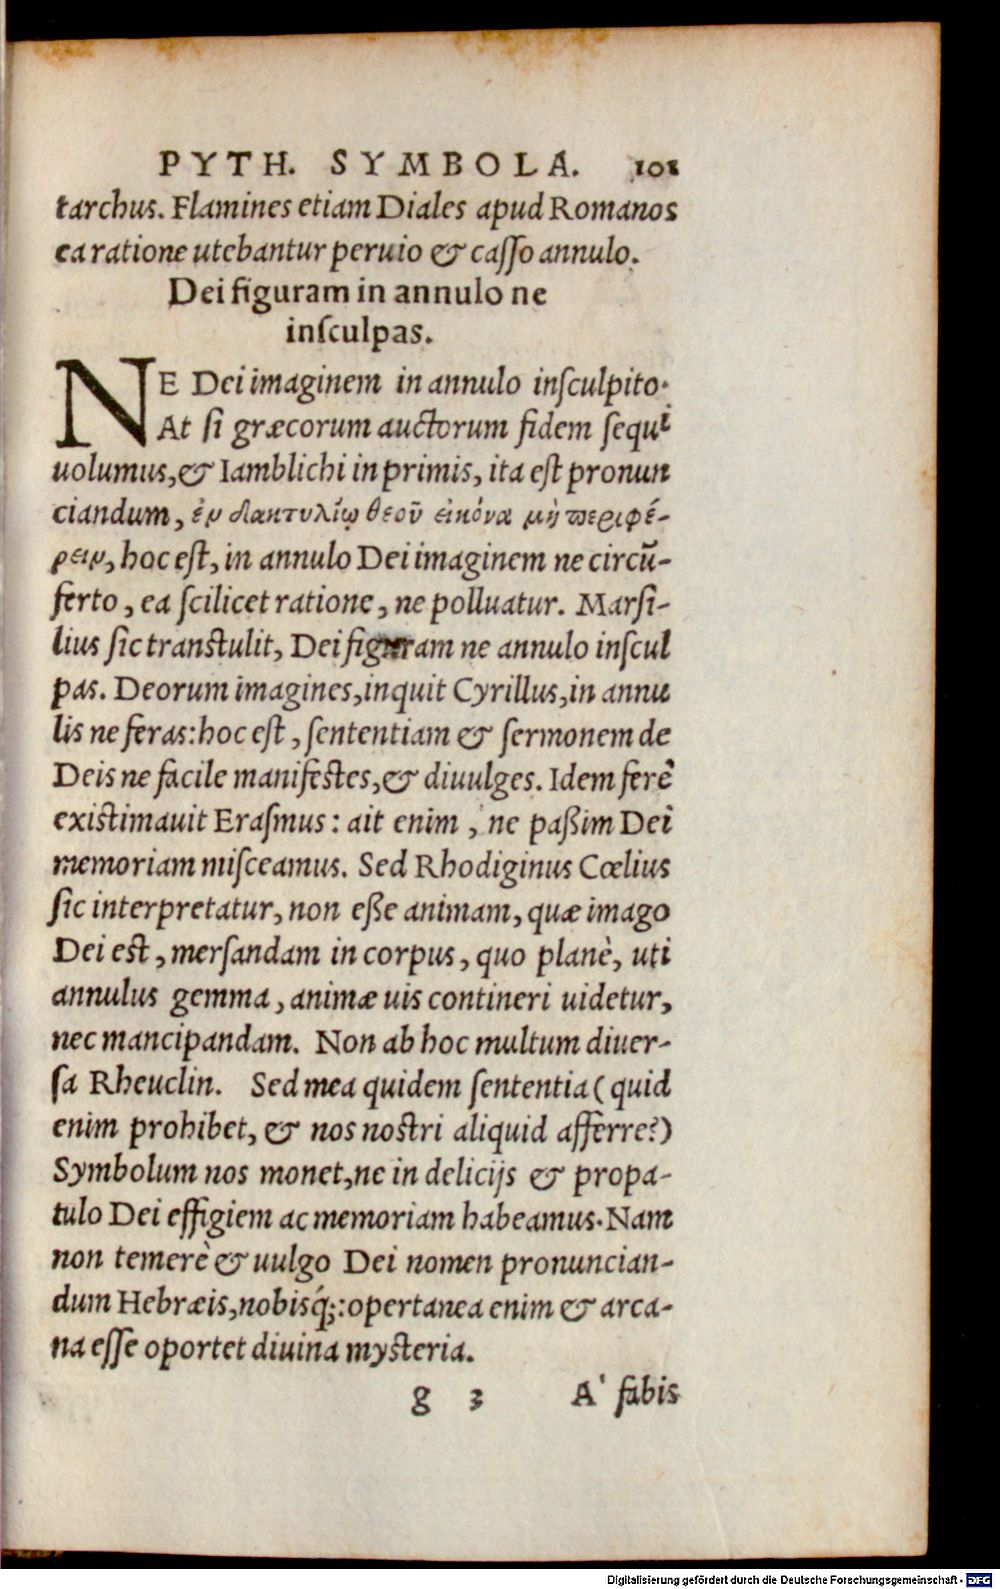 PYTH. SYMBOLA. 101
tarchus. Flamines etiam Diales apud Romanos
ea ratione utebantur peruio & caſſo annulo.
Dei figuram in annulo ne
inſculpas.
NE Dei imaginem in annulo inſculpito.
At ſi græcorum auctorum fidem ſequi
uolumus, & Iamblichi in primis, ita eſt pronun
ciandum, ἐν δακτυλίῳ θεοῦ εἰκόνα μὴ περιφέ-
ρειν, hoc eſt, in annulo Dei imaginem ne circũ-
ferto, ea ſcilicet ratione, ne polluatur. Marſi-
lius ſic tranſtulit, Dei figuram ne annulo inſcul
pas. Deorum imagines, inquit Cyrillus, in annu
lis ne feras: hoc eſt, ſententiam & ſermonem de
Deis ne facile manifeſtes, & diuulges. Idem ferè
exiſtimauit Eraſmus: ait enim, ne paßim Dei
memoriam miſceamus. Sed Rhodiginus Cœlius
ſic interpretatur, non eße animam, quæ imago
Dei eſt, merſandam in corpus, quo planè, uti
annulus gemma, animæ uis contineri uidetur,
nec mancipandam. Non ab hoc multum diuer-
ſa Rheuclin. Sed mea quidem ſententia (quid
enim prohibet, & nos noſtri aliquid afferre?)
Symbolum nos monet, ne in delicijs & propa-
tulo Dei effigiem ac memoriam habeamus. Nam
non temerè & uulgo Dei nomen pronuncian-
dum Hebræis, nobisq́;: opertanea enim & arca-
na eſſe oportet diuina myſteria.
g 3 A' fabis
Digitalisierung gefördert durch die Deutsche Forschungsgemeinschaft - DFG